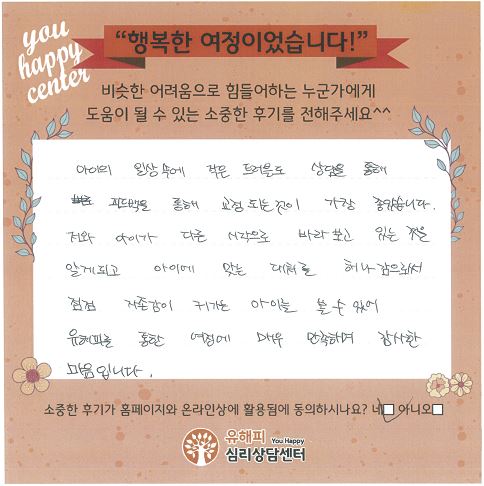 you
happy
center
“행복한 여정이었습니다!”
비슷한 어려움으로 힘들어하는 누군가에게
도움이 될 수 있는 소중한 후기를 전해주세요^^
아이의 일상 속에 작은 트러블도 상담을 통해
피드백을 통해 교정 되는것이 가장 좋았습니다.
저와 아이가 다른 시각으로 바라 보고 있는 것을
알게되고 아이에 맞는 대처를 해 나감으로써
점점 자존감이 커가는 아이를 볼 수 있어
유해피를 통한 여정에 매우 만족하며 감사한
마음입니다.
소중한 후기가 홈페이지와 온라인상에 활용됨에 동의하시나요? 네□ 아니오□
유해피 You Happy
심리상담센터